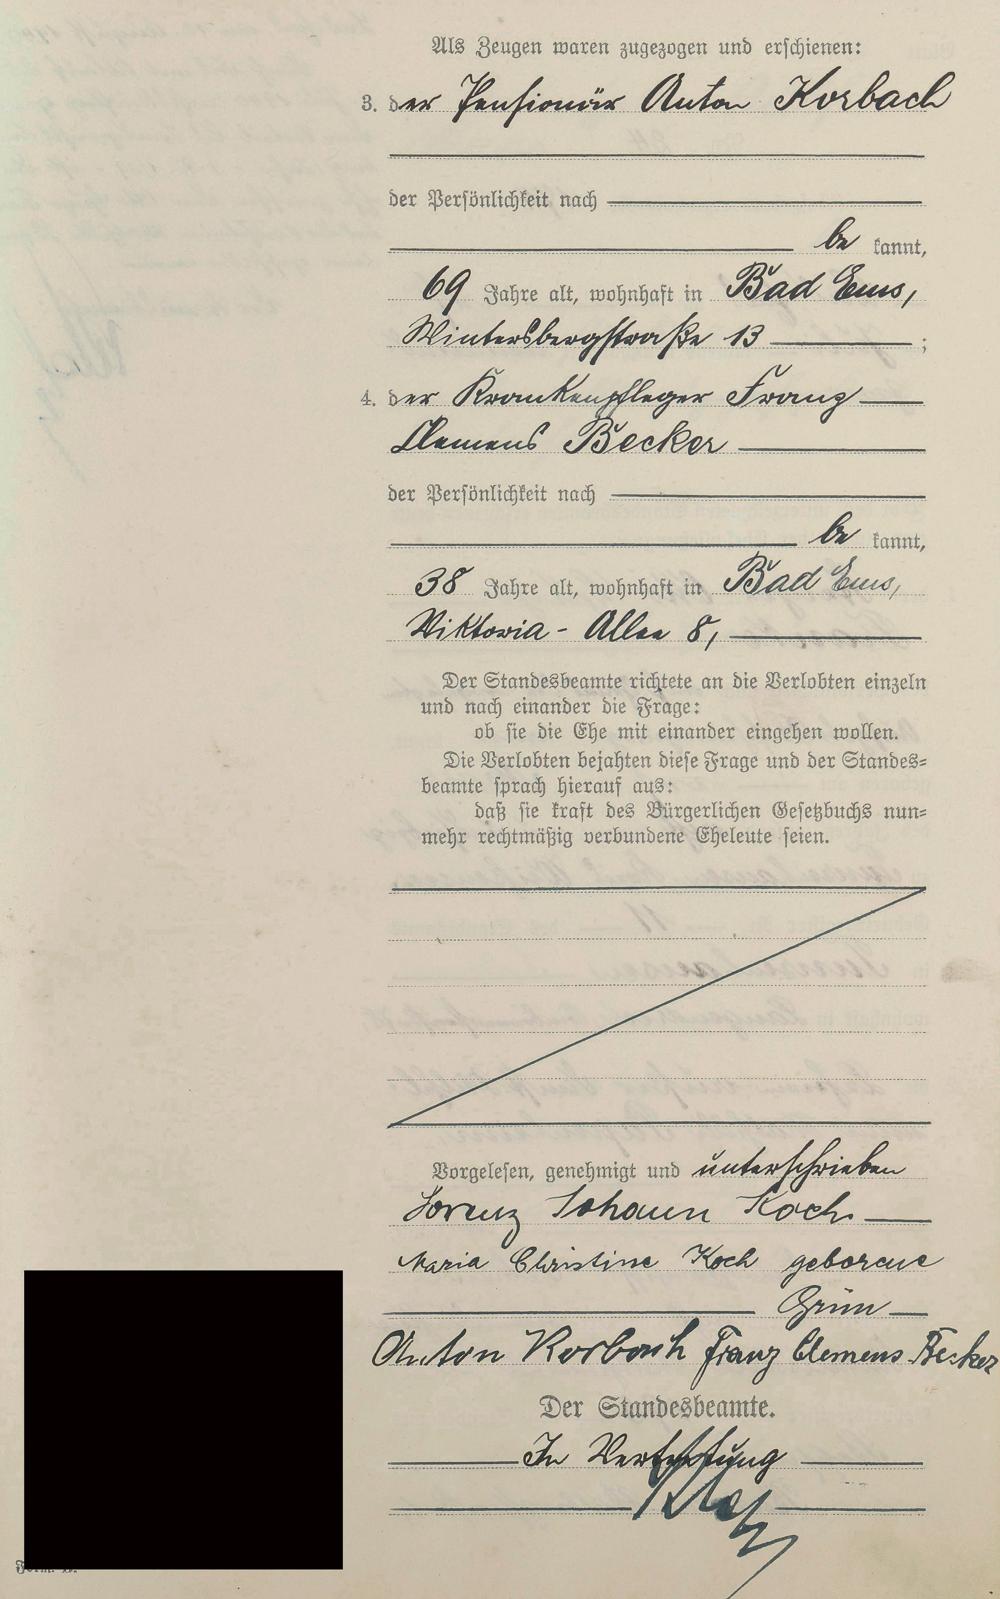 Als Zeugen waren zugezogen und erschienen:
3. der Pensionär Anton Korbach
der Persönlichkeit nach
be kannt,
69 Jahre alt, wohnhaft in Bad Ems,
Wintersbergstraße 13 ;
4. der Krankenpfleger Franz
Clemens Becker
der Persönlichkeit nach
be kannt,
38 Jahre alt, wohnhaft in Bad Ems,
Viktoria-Allee 8,
Der Standesbeamte richtete an die Verlobten einzeln
und nach einander die Frage:
ob sie die Ehe mit einander eingehen wollen.
Die Verlobten bejahten diese Frage und der Standes=
beamte sprach hierauf aus:
daß sie kraft des Bürgerlichen Gesetzbuchs nun=
mehr rechtmäßig verbundene Eheleute seien.
Vorgelesen, genehmigt und unterschrieben
Lorenz Johann Koch
Maria Christine Koch geborene
Grün
Anton Korbach Franz Clemens Becker
Der Standesbeamte.
In Vertretung